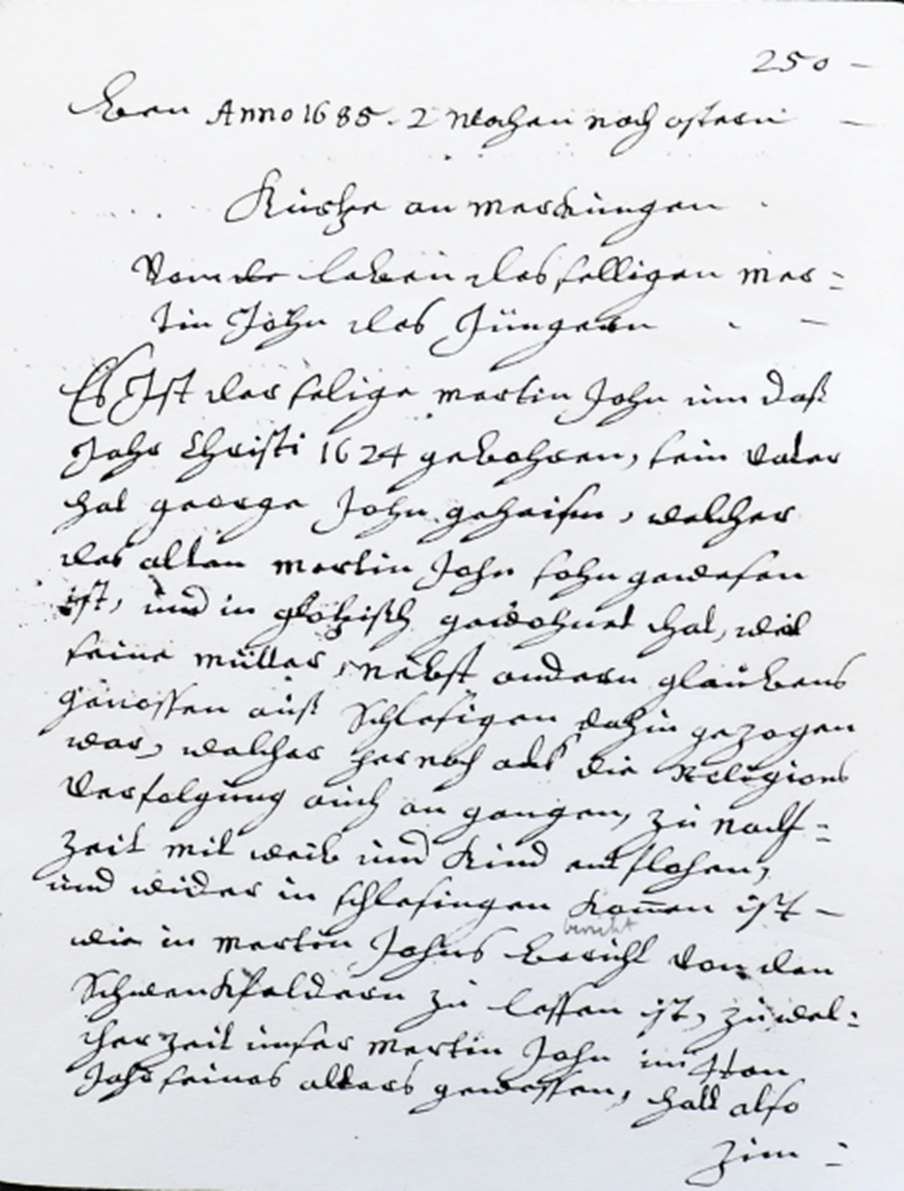 250 -
Eben Anno 1685. 2 Wochen nach ostern -
Kurtze an merckungen
Vom der leben des selligen mer=
tin John des Jüngern -
Es Ist der selige mertin John um daß
Jahr Christi 1624 gebohren, sein vater
hat george John geheisen, welcher
des alten mertin John sohn gewesen
ist, und in glotzisch gewohnet hat, weil
seine mutter, nebst andern glaubens
genossen auß Schlesigen dahin gezogen
war, welcher hernach als die Religions
Verfolgung auch an gangen, zu nacht=
zeit mit weib und Kind entflohen,
und wider in schlesingen komen ist -
bericht
wie in mertin Johns bericht von den
Schwenckfeldern zu lessen ist, zu wel=
cher zeit unser mertin John im ten
Jahr seines alters gewessen, hatt also
zim=